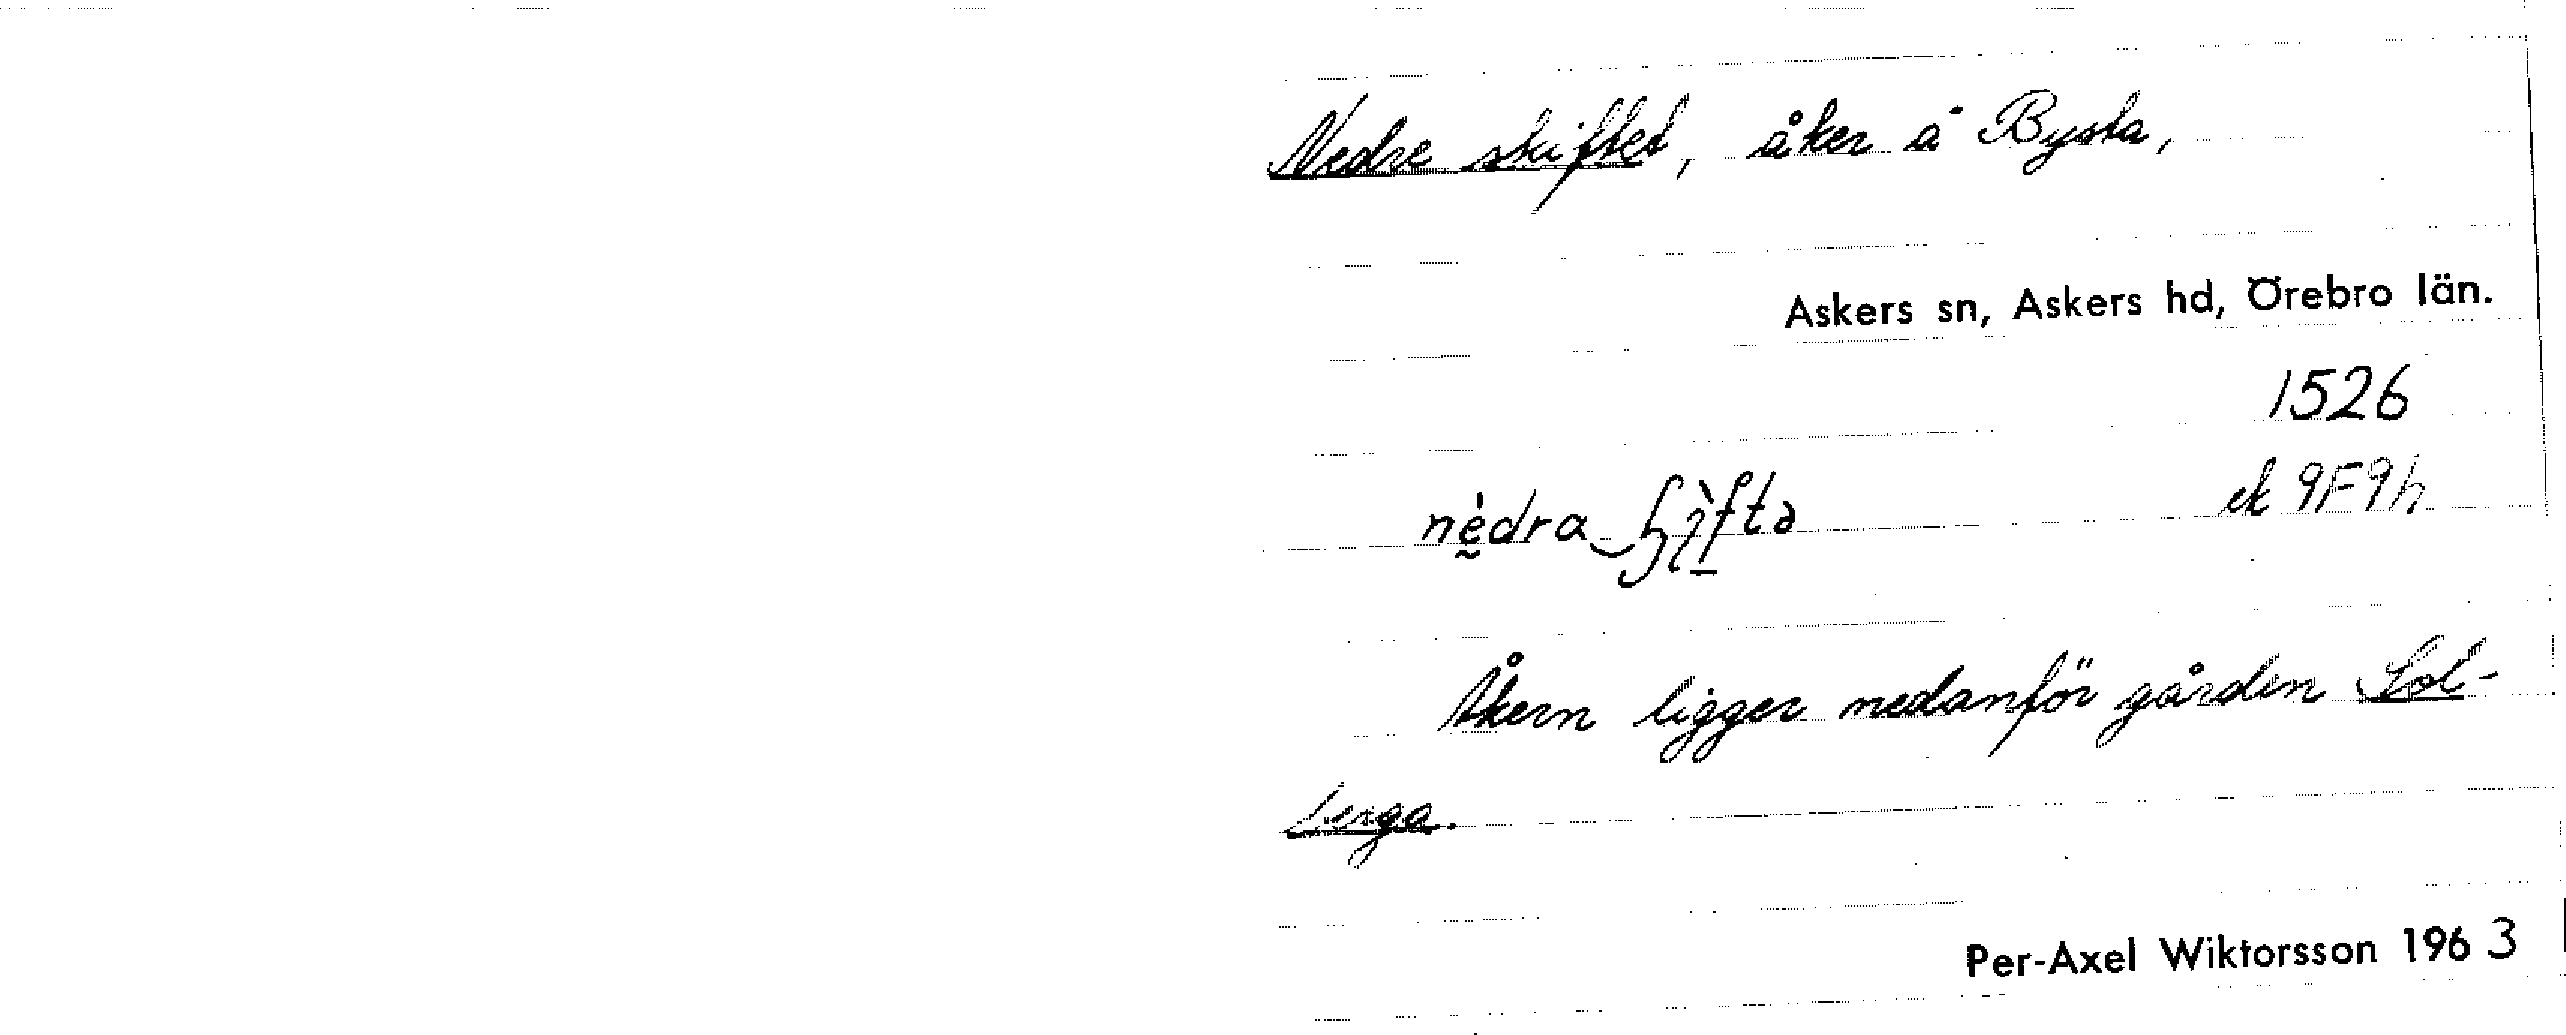 Nedre skiftet, åker å Bysta,
Askers sn, Askers hd, Örebro län.
1526
nèdra
ek 9F9h
Åkern ligger nedanför gården Sol-
berga.
Per-Axel Wiktorsson 1963